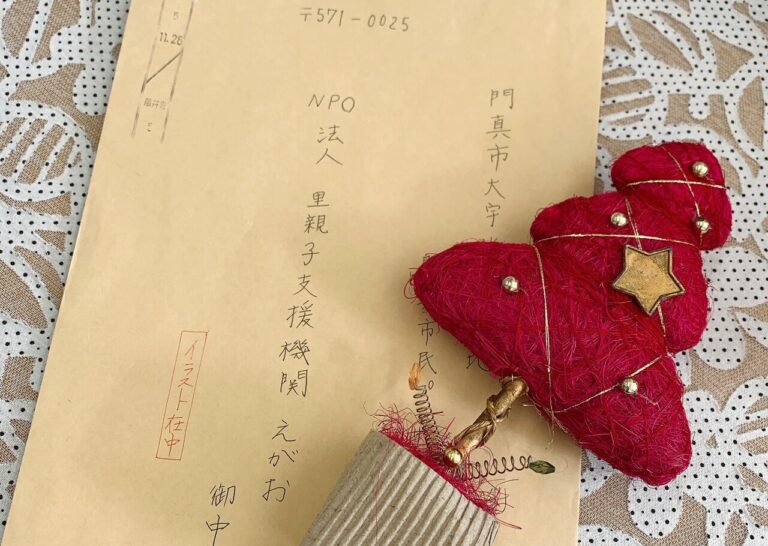 〒571-0025
門真市大字
地
市民
NPO法人 里親子支援機関 えがお
御中
イラスト在中
5
11.28